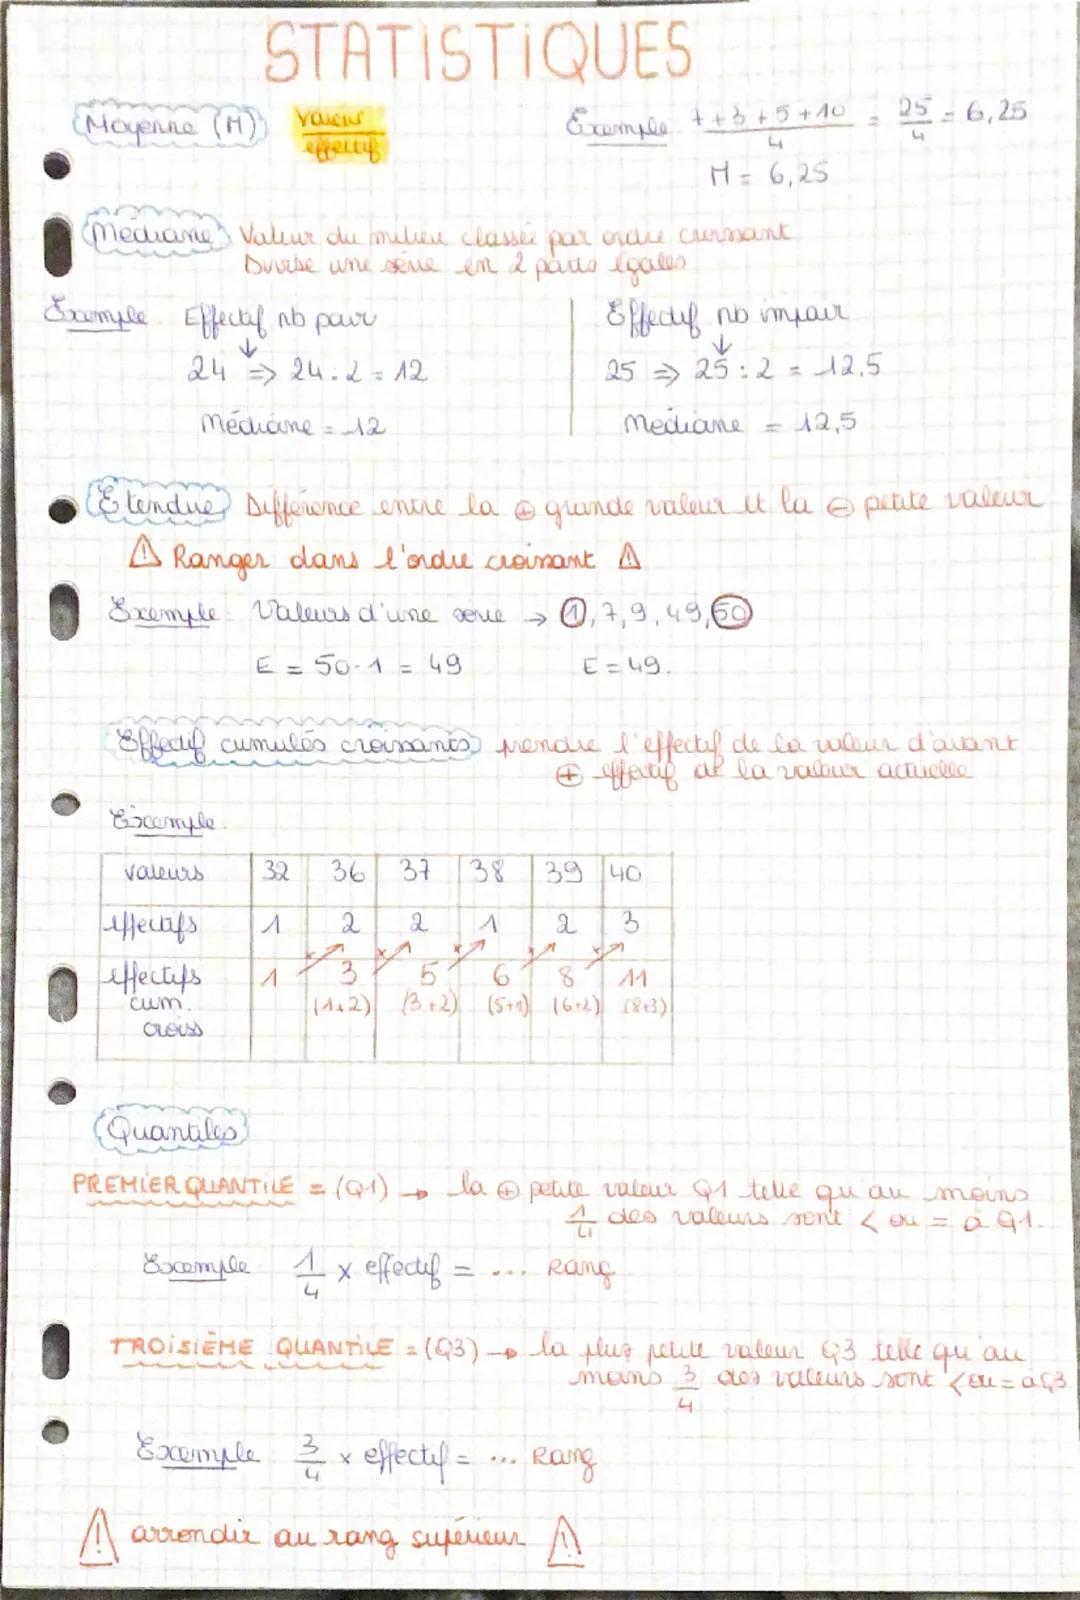 STATISTIQUES
Moyenne (M) valeur / effectif Exemple 7+3+5+10 / 4 = 25 / 4 = 6,25
M = 6,25
Médiane Valeur du milieu classée par ordre croissant
Divise une série en 2 parts égales
Exemple Effectif nb pair
↓
24 => 24:2 = 12
Médiane = 12
Effectif nb impair
↓
25 => 25:2 = 12,5
Médiane = 12,5
Etendue Différence entre la ⊕ grande valeur et la ⊖ petite valeur
⚠ Ranger dans l'ordre croissant ⚠
Exemple Valeurs d'une série → 1, 7, 9, 49, 50
E = 50-1 = 49 E = 49.
Effectif cumulés croissants prendre l'effectif de la valeur d'avant
⊕ effectif de la valeur actuelle
Exemple.
valeurs 32 36 37 38 39 40
effectifs 1 2 2 1 2 3
effectifs 1 3 5 6 8 11
cum. (1+2) (3+2) (5+1) (6+2) (8+3)
croiss
Quantiles
PREMIER QUANTILE = (Q1) → la ⊕ petite valeur Q1 telle qu'au moins
1/4 des valeurs sont < ou = à Q1.
Exemple 1/4 x effectif = ... Rang
TROISIÈME QUANTILE = (Q3) → la plus petite valeur Q3 telle qu'au
moins 3/4 des valeurs sont < ou = à Q3
Exemple 3/4 x effectif = ... Rang
⚠ arrondir au rang supérieur ⚠